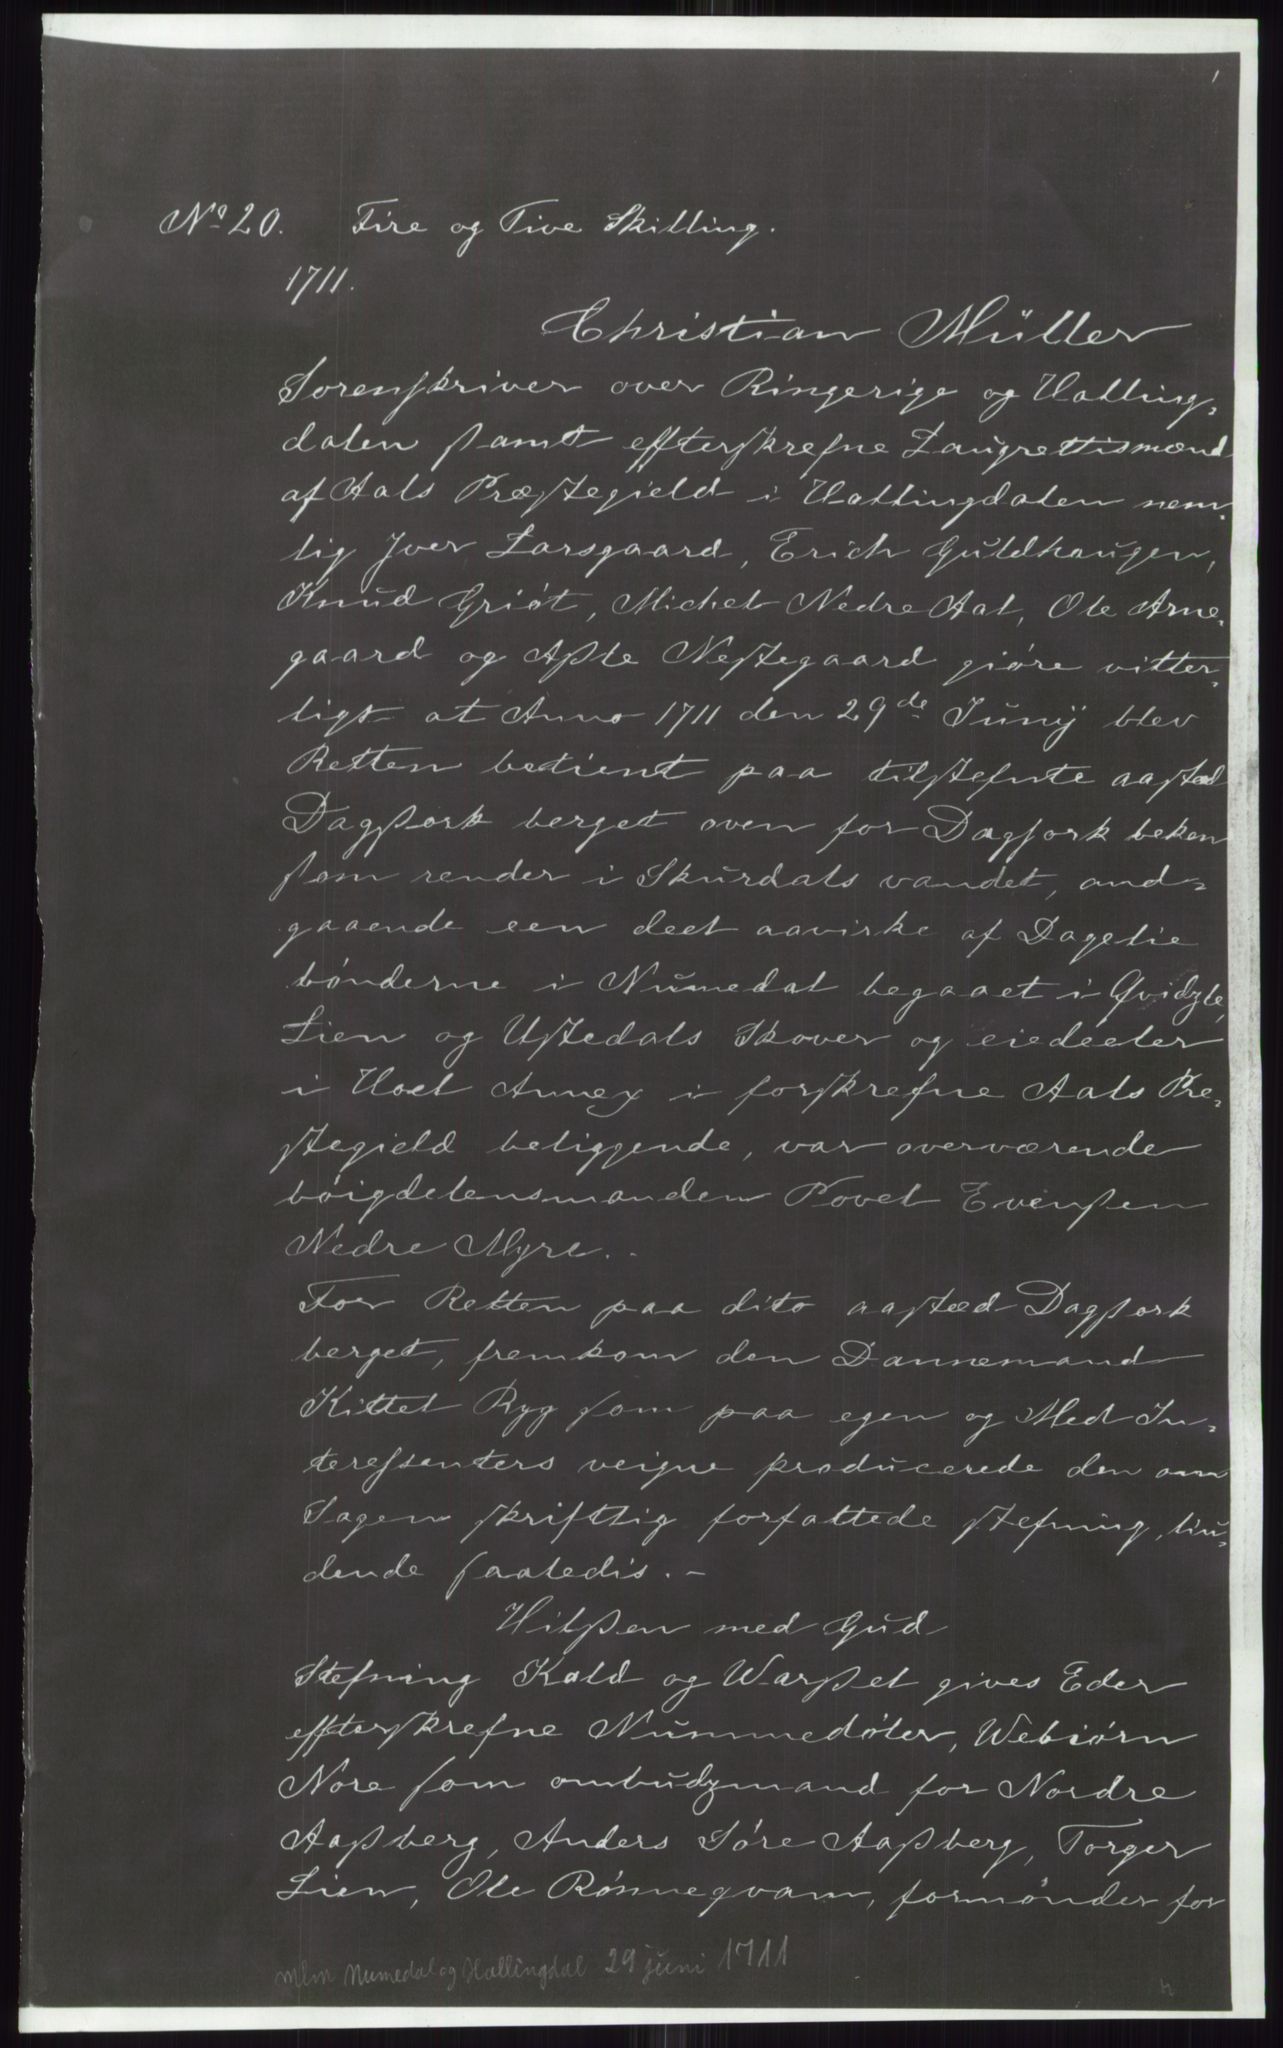 1
No 20. Fire og Tive Skilling.
1711.
Christian Müller
Sorenskriver over Ringerige og Halling-
dalen samt effterskrefne Laugrettismænd
af Aals Præstegield i Hallingdalen nem-
lig Jver Larsgaard, Erich Guldhaugen,
Knud Griøt, Michel Nedre Aal, Ole Arne-
gaard og Aßle Nestegaard giøre vitter-
ligt at Anno 1711 den 29de Junij blev
Retten betient paa tilstefnte aasted
Dagßork berget oven for Dagsork beken
som render i Skurdals vandet, and-
gaaende een deel aavirke af Dagelie
bønderne i Numedal begaaet i Qvidzle,
Lien og Ustedals Skover og eiedeeler
i Hoel Annex i forskrefne Aals Pre-
stegield beliggende, var overværende
bøigdelensmanden Povel Evenßen
Nedre Myre.
For Retten paa dito aasted Dagßork
berget, fremkom den Dannemand
Kittel Ryg som paa egen og Med In-
teressenters veigne producerede den om
Sagen skriftlig forfattede stefning, liu-
dende saaledis.-
Hilßen med Gud
Stefning Kald og Warßel gives Eder
effterskrefne Nummedøler, Webiørn
Nore som ombudzmand for Nordre
Aaßberg, Anders Søre Aaßberg, Torger
Lien, Ole Rønneqvam, formønder for
mlm Numedal og Hallingdal 29 juni 1711